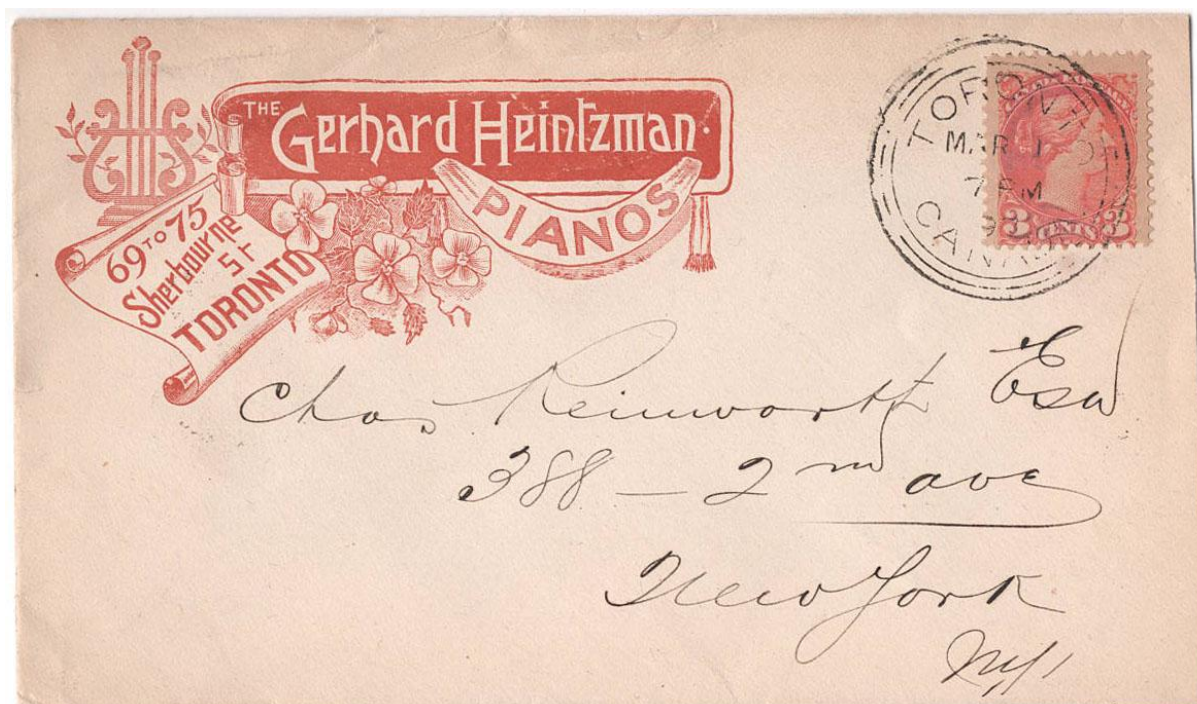 THE
Gerhard Heintzman.
PIANOS
69 TO 75
Sherbourne
ST
TORONTO
TORONTO
MAR 1
7 PM
93
CANADA
3 CENTS 3
Chas Reinwarth Esq
388 - 2nd ave
New York
N.Y.